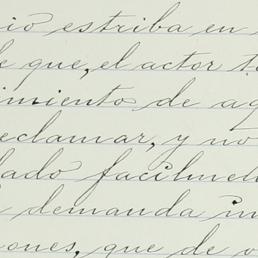 cio estriba en
de que, el actor t
imiento de aq
reclamar, y no
lado facilme
demanda in
ones, que de v